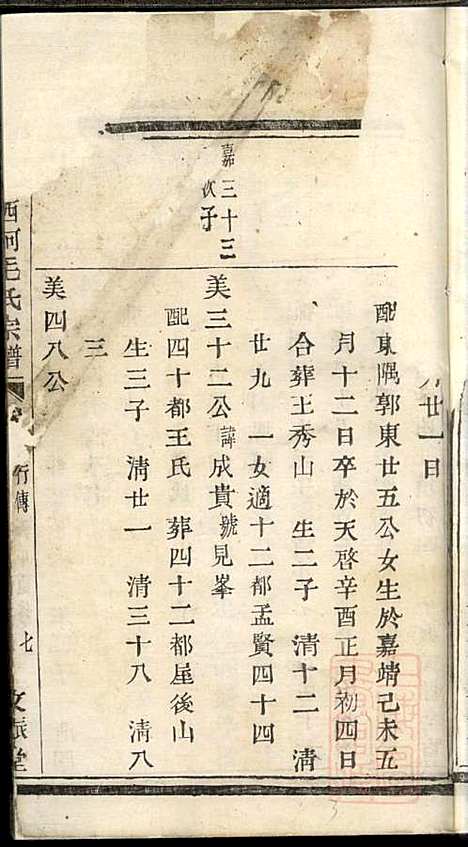 月廿一日
配東隅郭東廿五公女生於嘉靖己未五
月十二日卒於天啓辛酉正月初四日
合葬王秀山　生二子　清十二　清
廿九　一女適十二都孟賢四十四
嘉三十三
次子
美三十二公諱成貴號見峯
配四十都王氏　葬四十二都屋後山
生三子　清廿一　清三十八　清八
三
美四八公
西河毛氏宗譜
行傳
七
文振堂